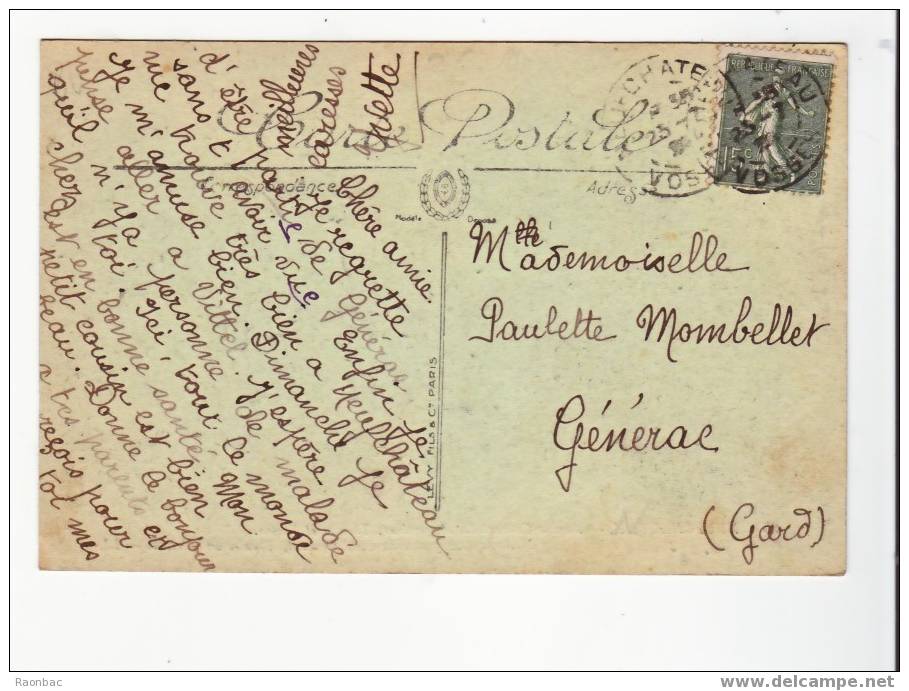 Carte Postale
Correspondance
Adresse
Modèle Déposé
LEVY FILS & Cie PARIS
REPUBLIQUE FRANÇAISE
VOSGES
Chère amie.
Je regrette
d'être partie de Générac
sans t'avoir vue. Enfin je
me trouve très bien a Neufchâteau
Je m'amuse bien. Dimanche je
pense aller a Vittel. J'espère
qu'il n'y a personne de malade
chez toi. Ici tout le monde
est en bonne santé. Mon
petit cousin est bien
beau. Donne le bonjour
a tes parents et
reçois pour
toi mes
meilleures
caresses
Mademoiselle
Paulette Mombellet
Générac
(Gard)
Raonbac
www.delcampe.net